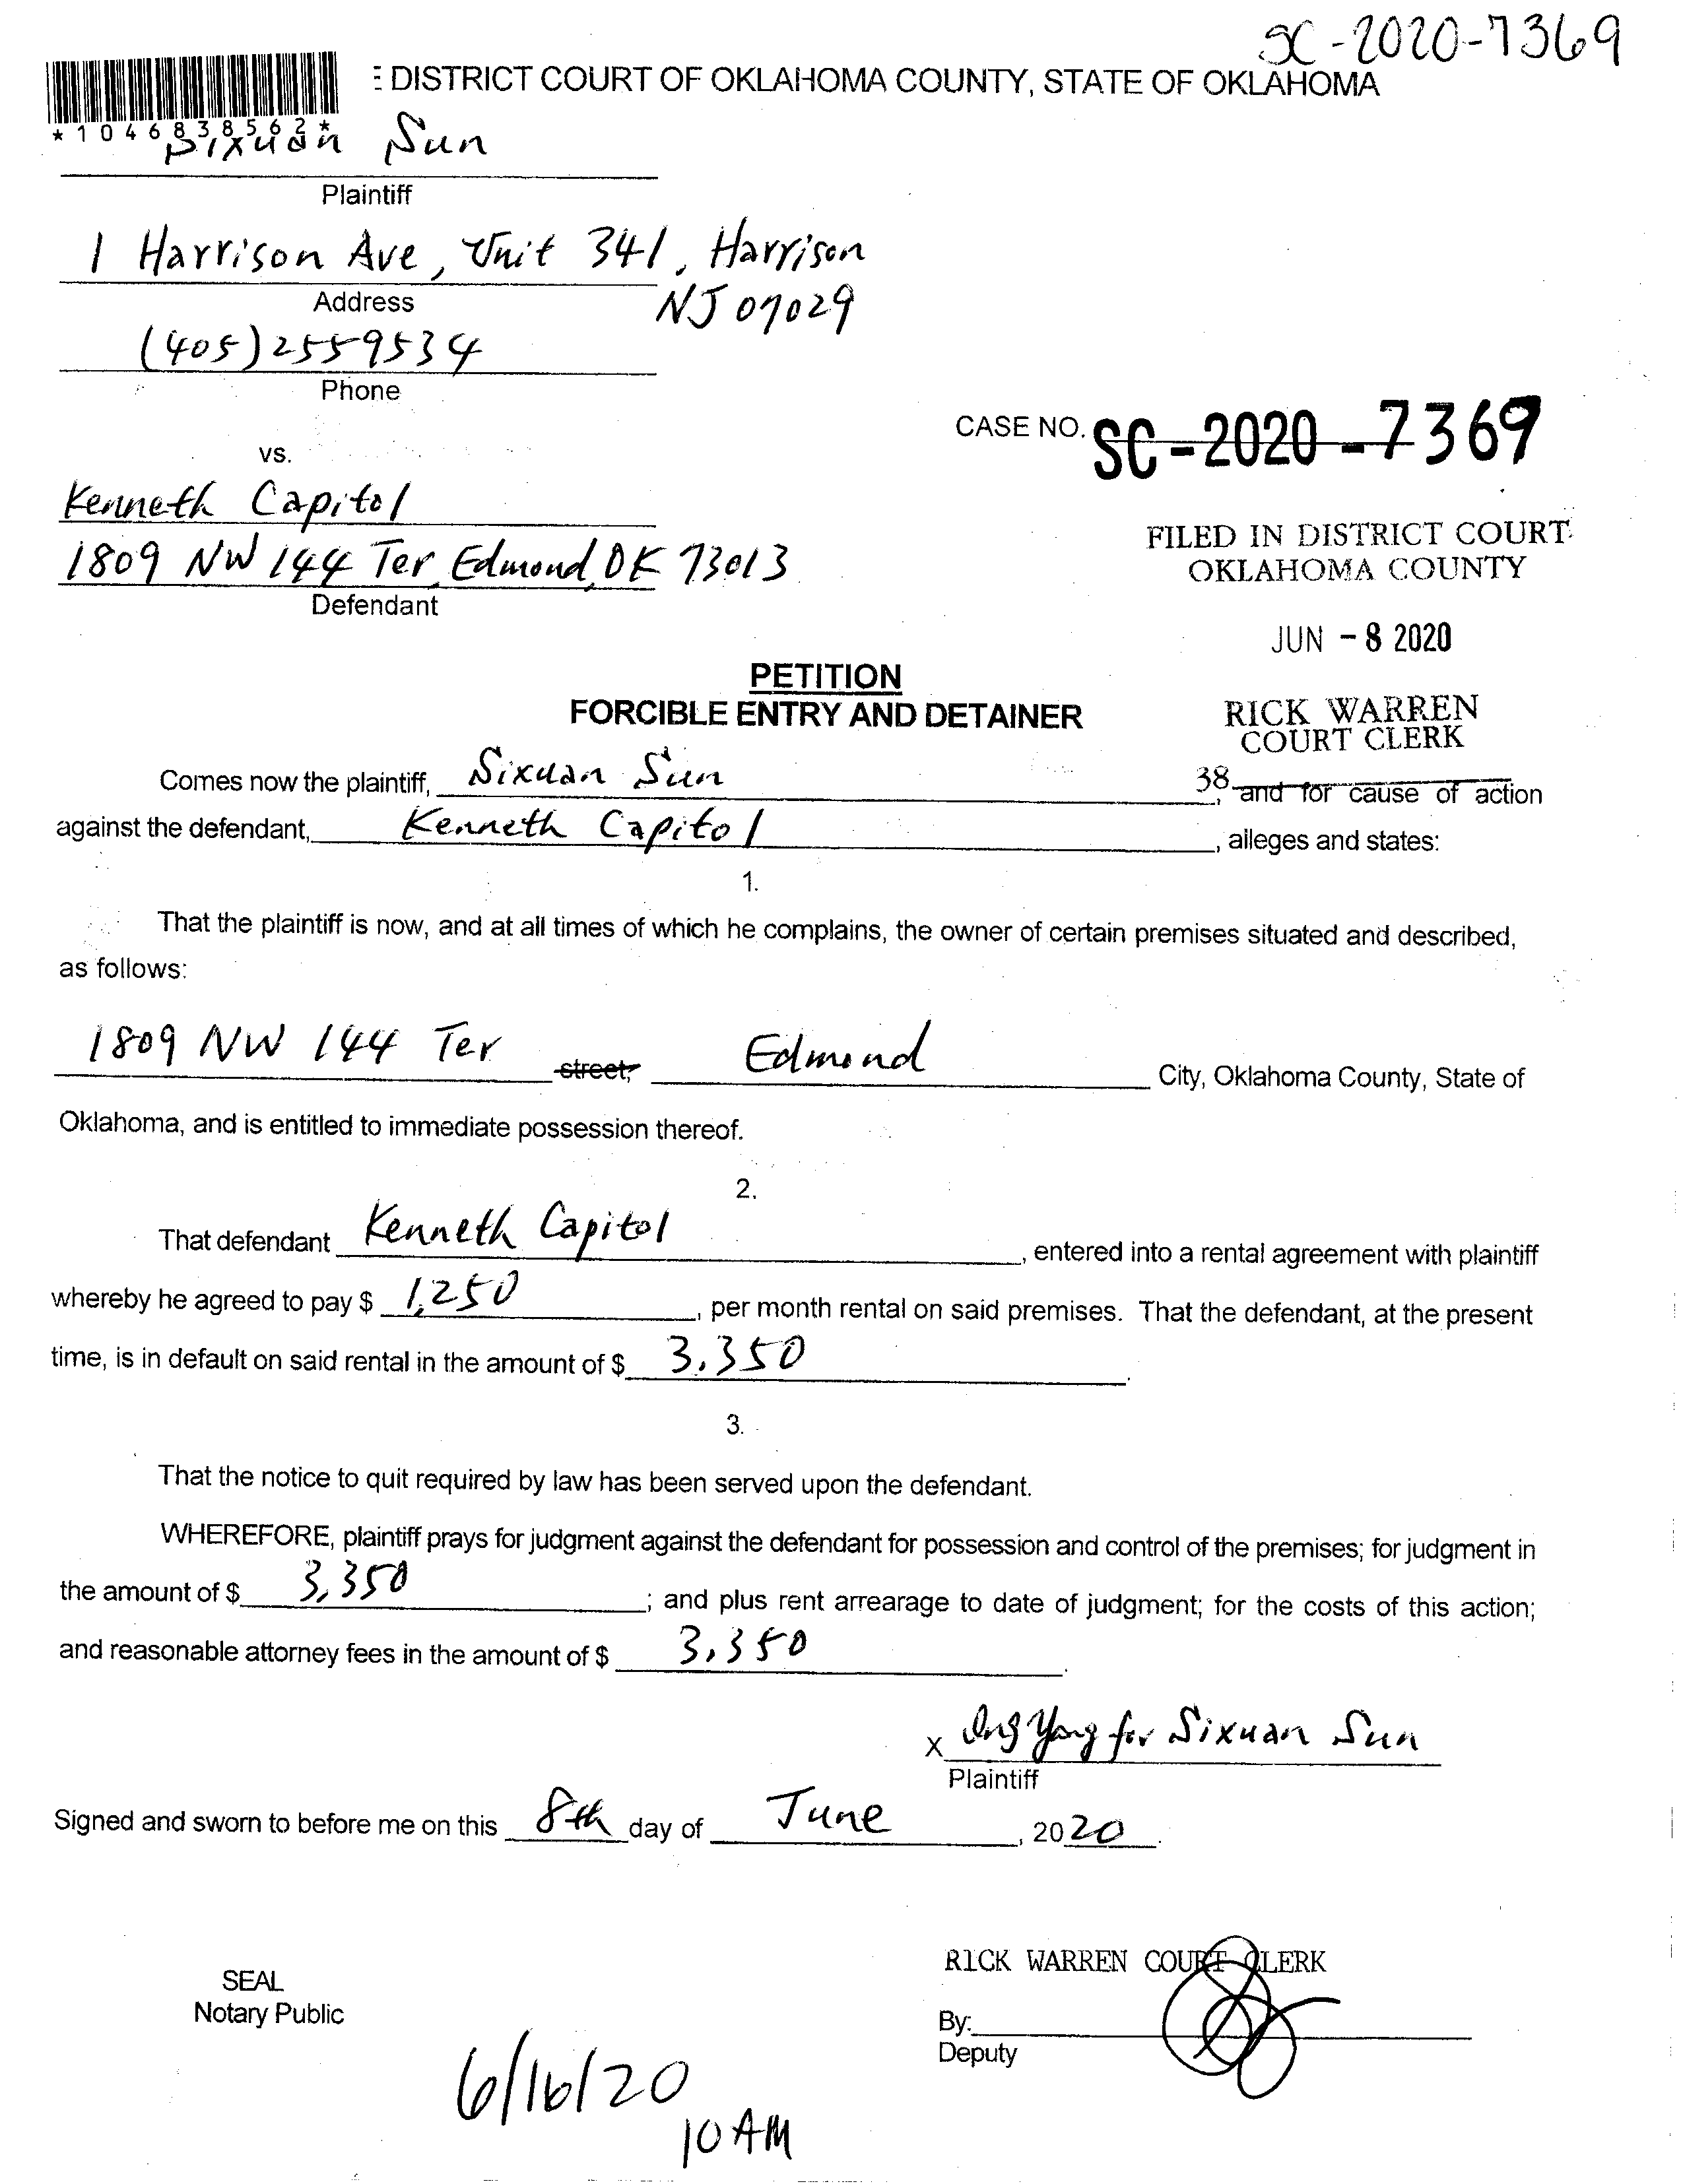 SC-2020-7369
DISTRICT COURT OF OKLAHOMA COUNTY, STATE OF OKLAHOMA
*1046838562*
Sixuan Sun
Plaintiff
1 Harrison Ave, Unit 341, Harrison
Address
NJ 07029
(405)2559534
Phone
CASE NO. SC-2020-7369
vs.
Kenneth Capitol
1809 NW 144 Ter, Edmond, OK 73013
Defendant
FILED IN DISTRICT COURT
OKLAHOMA COUNTY
JUN -8 2020
PETITION
FORCIBLE ENTRY AND DETAINER
RICK WARREN
COURT CLERK
38
Comes now the plaintiff, Sixuan Sun, and for cause of action
against the defendant, Kenneth Capitol, alleges and states:
1.
That the plaintiff is now, and at all times of which he complains, the owner of certain premises situated and described,
as follows:
1809 NW 144 Ter street, Edmond City, Oklahoma County, State of
Oklahoma, and is entitled to immediate possession thereof.
2.
That defendant Kenneth Capitol, entered into a rental agreement with plaintiff
whereby he agreed to pay $ 1,250, per month rental on said premises. That the defendant, at the present
time, is in default on said rental in the amount of $ 3,350.
3.
That the notice to quit required by law has been served upon the defendant.
WHEREFORE, plaintiff prays for judgment against the defendant for possession and control of the premises; for judgment in
the amount of $ 3,350; and plus rent arrearage to date of judgment; for the costs of this action;
and reasonable attorney fees in the amount of $ 3,350.
x Yang for Sixuan Sun
Plaintiff
Signed and sworn to before me on this 8th day of June, 2020.
RICK WARREN COURT CLERK
SEAL
Notary Public
By:
Deputy
6/16/20
10 AM